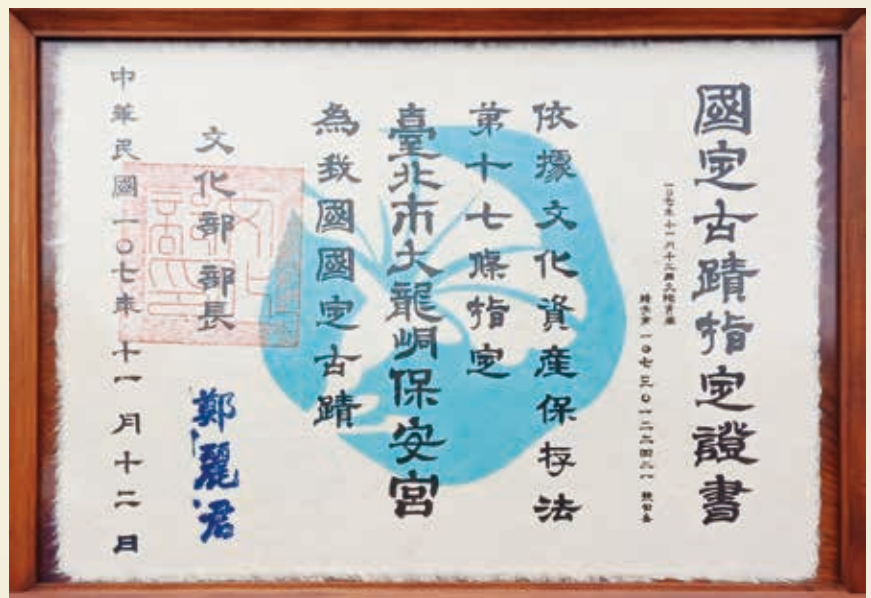 國定古蹟指定證書
一〇七年十一月十二日文授資局
蹟字第一〇七三〇一二二四二一號公告
依據文化資產保存法
第十七條指定
臺北市大龍峒保安宮
為我國國定古蹟
文化部部長
鄭麗君
中華民國一〇七年十一月十二日